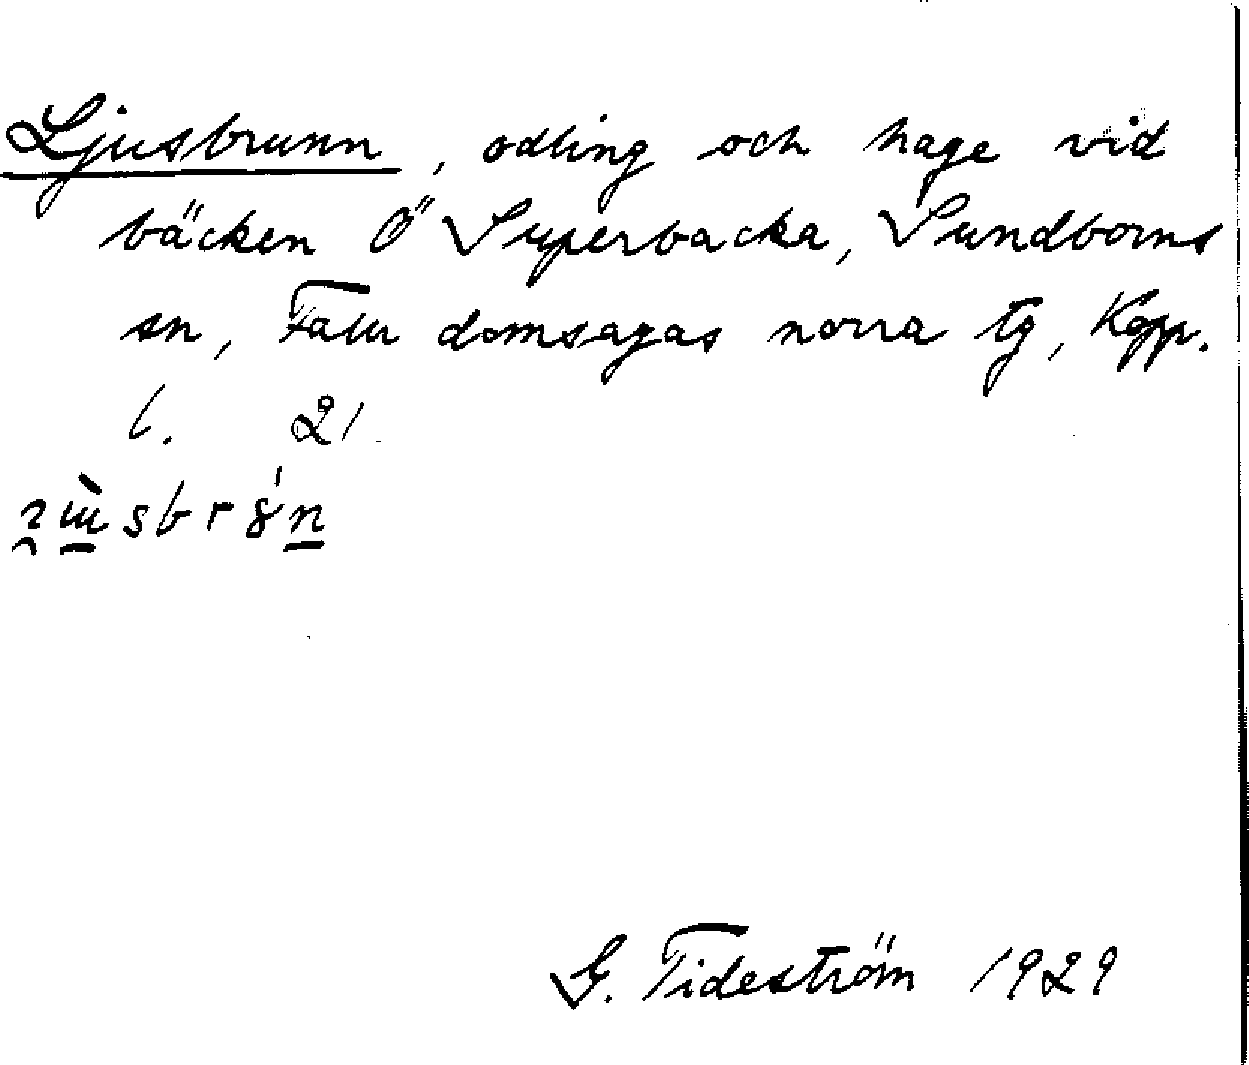 Ljusbrunn, odling och hage vid
bäcken Ö Superbacka, Sundborns
sn, Falu domsagas norra tg, Kopp.
l. 21.
G. Tideström 1929